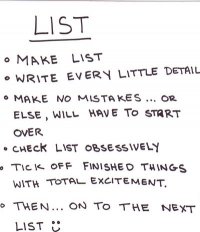 LIST
• MAKE LIST
• WRITE EVERY LITTLE DETAIL
• MAKE NO MISTAKES ... OR
ELSE, WILL HAVE TO START
OVER
• CHECK LIST OBSESSIVELY
• TICK OFF FINISHED THINGS
WITH TOTAL EXCITEMENT.
• THEN... ON TO THE NEXT
LIST :)